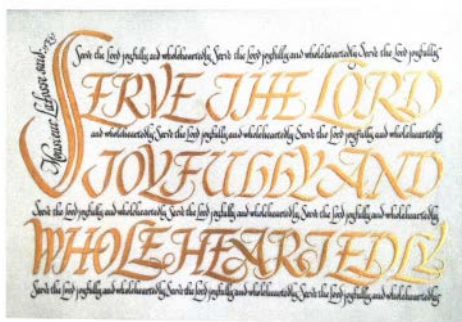 Monsieur said
Serve the Lord joyfully and wholeheartedly Serve the Lord joyfully and wholeheartedly Serve the Lord joyfully
SERVE THE LORD
and wholeheartedly Serve the Lord joyfully and wholeheartedly Serve the Lord joyfully and wholeheartedly
JOYFULLY AND
Serve the Lord joyfully and wholeheartedly Serve the Lord joyfully and wholeheartedly Serve the Lord joyfully
WHOLEHEARTEDLY
Serve the Lord joyfully and wholeheartedly Serve the Lord joyfully and wholeheartedly Serve the Lord joyfully